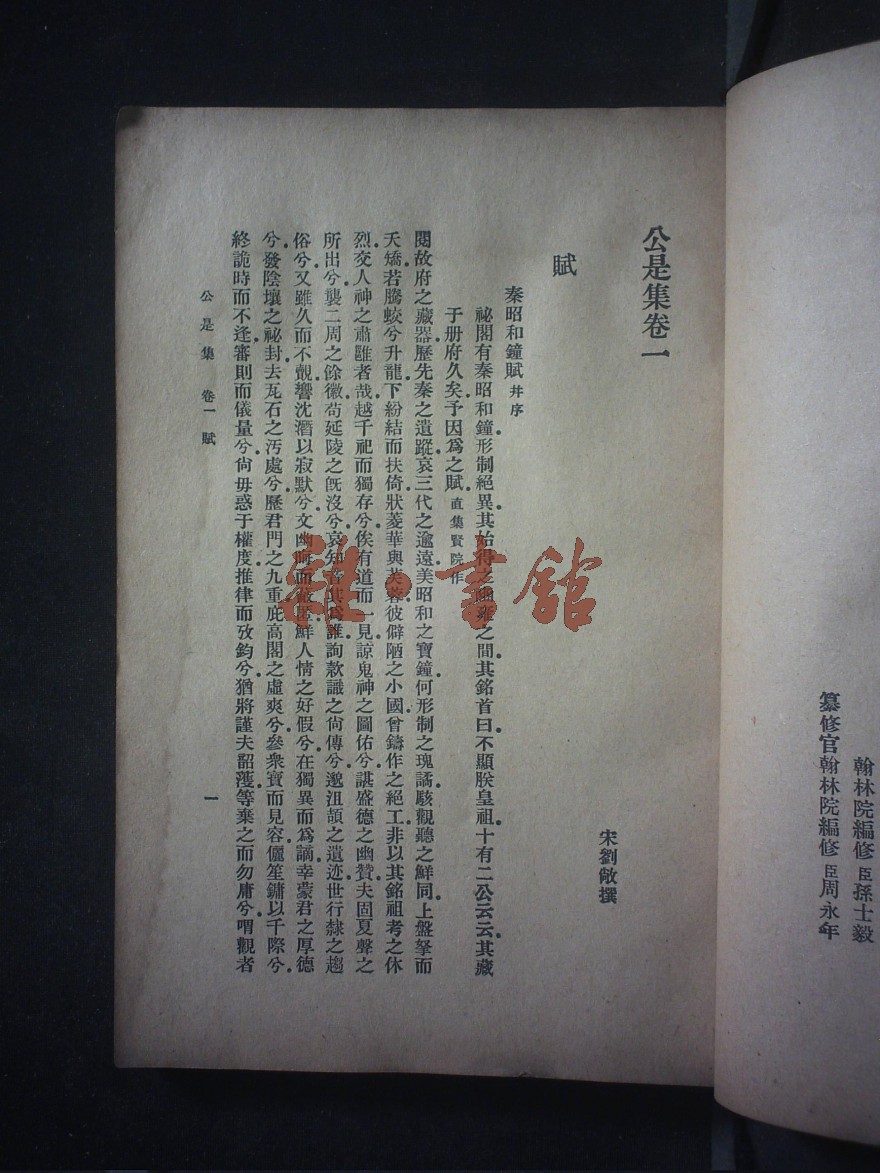 翰林院編修臣孫士毅
纂修官翰林院編修臣周永年
公是集卷一
宋劉敞撰
賦
秦昭和鐘賦并序
祕閣有秦昭和鐘。形制絕異。其始得之豳雍之間。其銘首曰。不顯朕皇祖。十有二公云云。其藏
于册府久矣。予因爲之賦。直集賢院作
閱故府之藏器。歷先秦之遺蹤。哀三代之逾遠。美昭和之寶鐘。何形制之瑰譎。駭觀聽之鮮同。上盤拏而
夭矯。若騰蛟兮升龍。下紛結而扶倚。狀菱華與芙蓉。彼僻陋之小國。曾鑄作之絕工。非以其銘祖考之休
烈。交人神之肅雝者哉。越千祀而獨存兮。俟有道而一見。諒鬼神之圖佑兮。諶盛德之幽贊。夫固夏聲之
所出兮。襲二周之餘徽。苟延陵之旣沒兮。哀知音其爲誰。詢款識之尙傳兮。邈沮頡之遺迹。世行隸之趨
俗兮。又雖久而不覿。響沈潛以寂默兮。文幽晦而 匿。鮮人情之好假兮。在獨異而爲謫。幸蒙君之厚德
兮。發陰壤之祕封。去瓦石之汚處兮。歷君門之九重。庇高閣之虛爽兮。參衆寶而見容。儷笙鏞以千際兮。
終詭時而不逢。審則而儀量兮。尙毋惑于權度。推律而攷鈞兮。猶將謹夫韶濩。等棄之而勿庸兮。喟觀者
公是集 卷一 賦
一
雜·書館